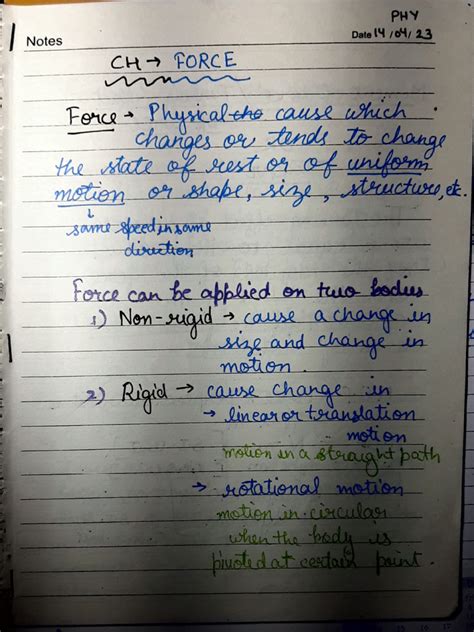 PHY
Notes
Date 14/04/23
CH → FORCE
Force → Physical cause which
changes or tends to change
the state of rest or of uniform
motion or shape, size, structure, etc.
↓
same speed in same
direction
Force can be applied on two bodies
1) Non-rigid → cause a change in
size and change in
motion.
2) Rigid → cause change in
→ linear or translation
motion
motion in a straight path
→ rotational motion
motion in circular
when the body is
pivoted at certain point.